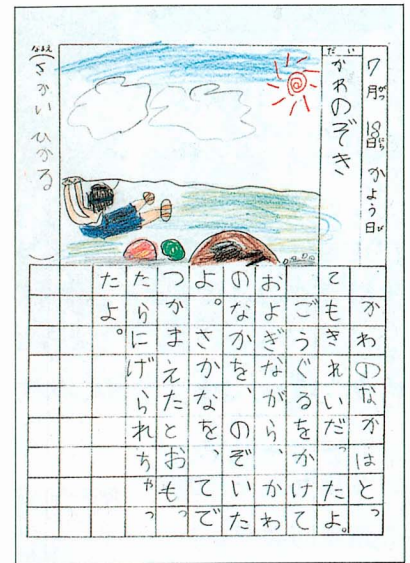 7月18日かよう日
がつ
にち
び
だい
かわのぞき
なまえ
(さかい ひかる)
かわのなかはとっ
てもきれいだったよ。
ごうぐるをかけて
およぎながら、かわ
のなかを、のぞいた
よ。さかなを、てで
つかまえたとおもっ
たらにげられちゃっ
たよ。